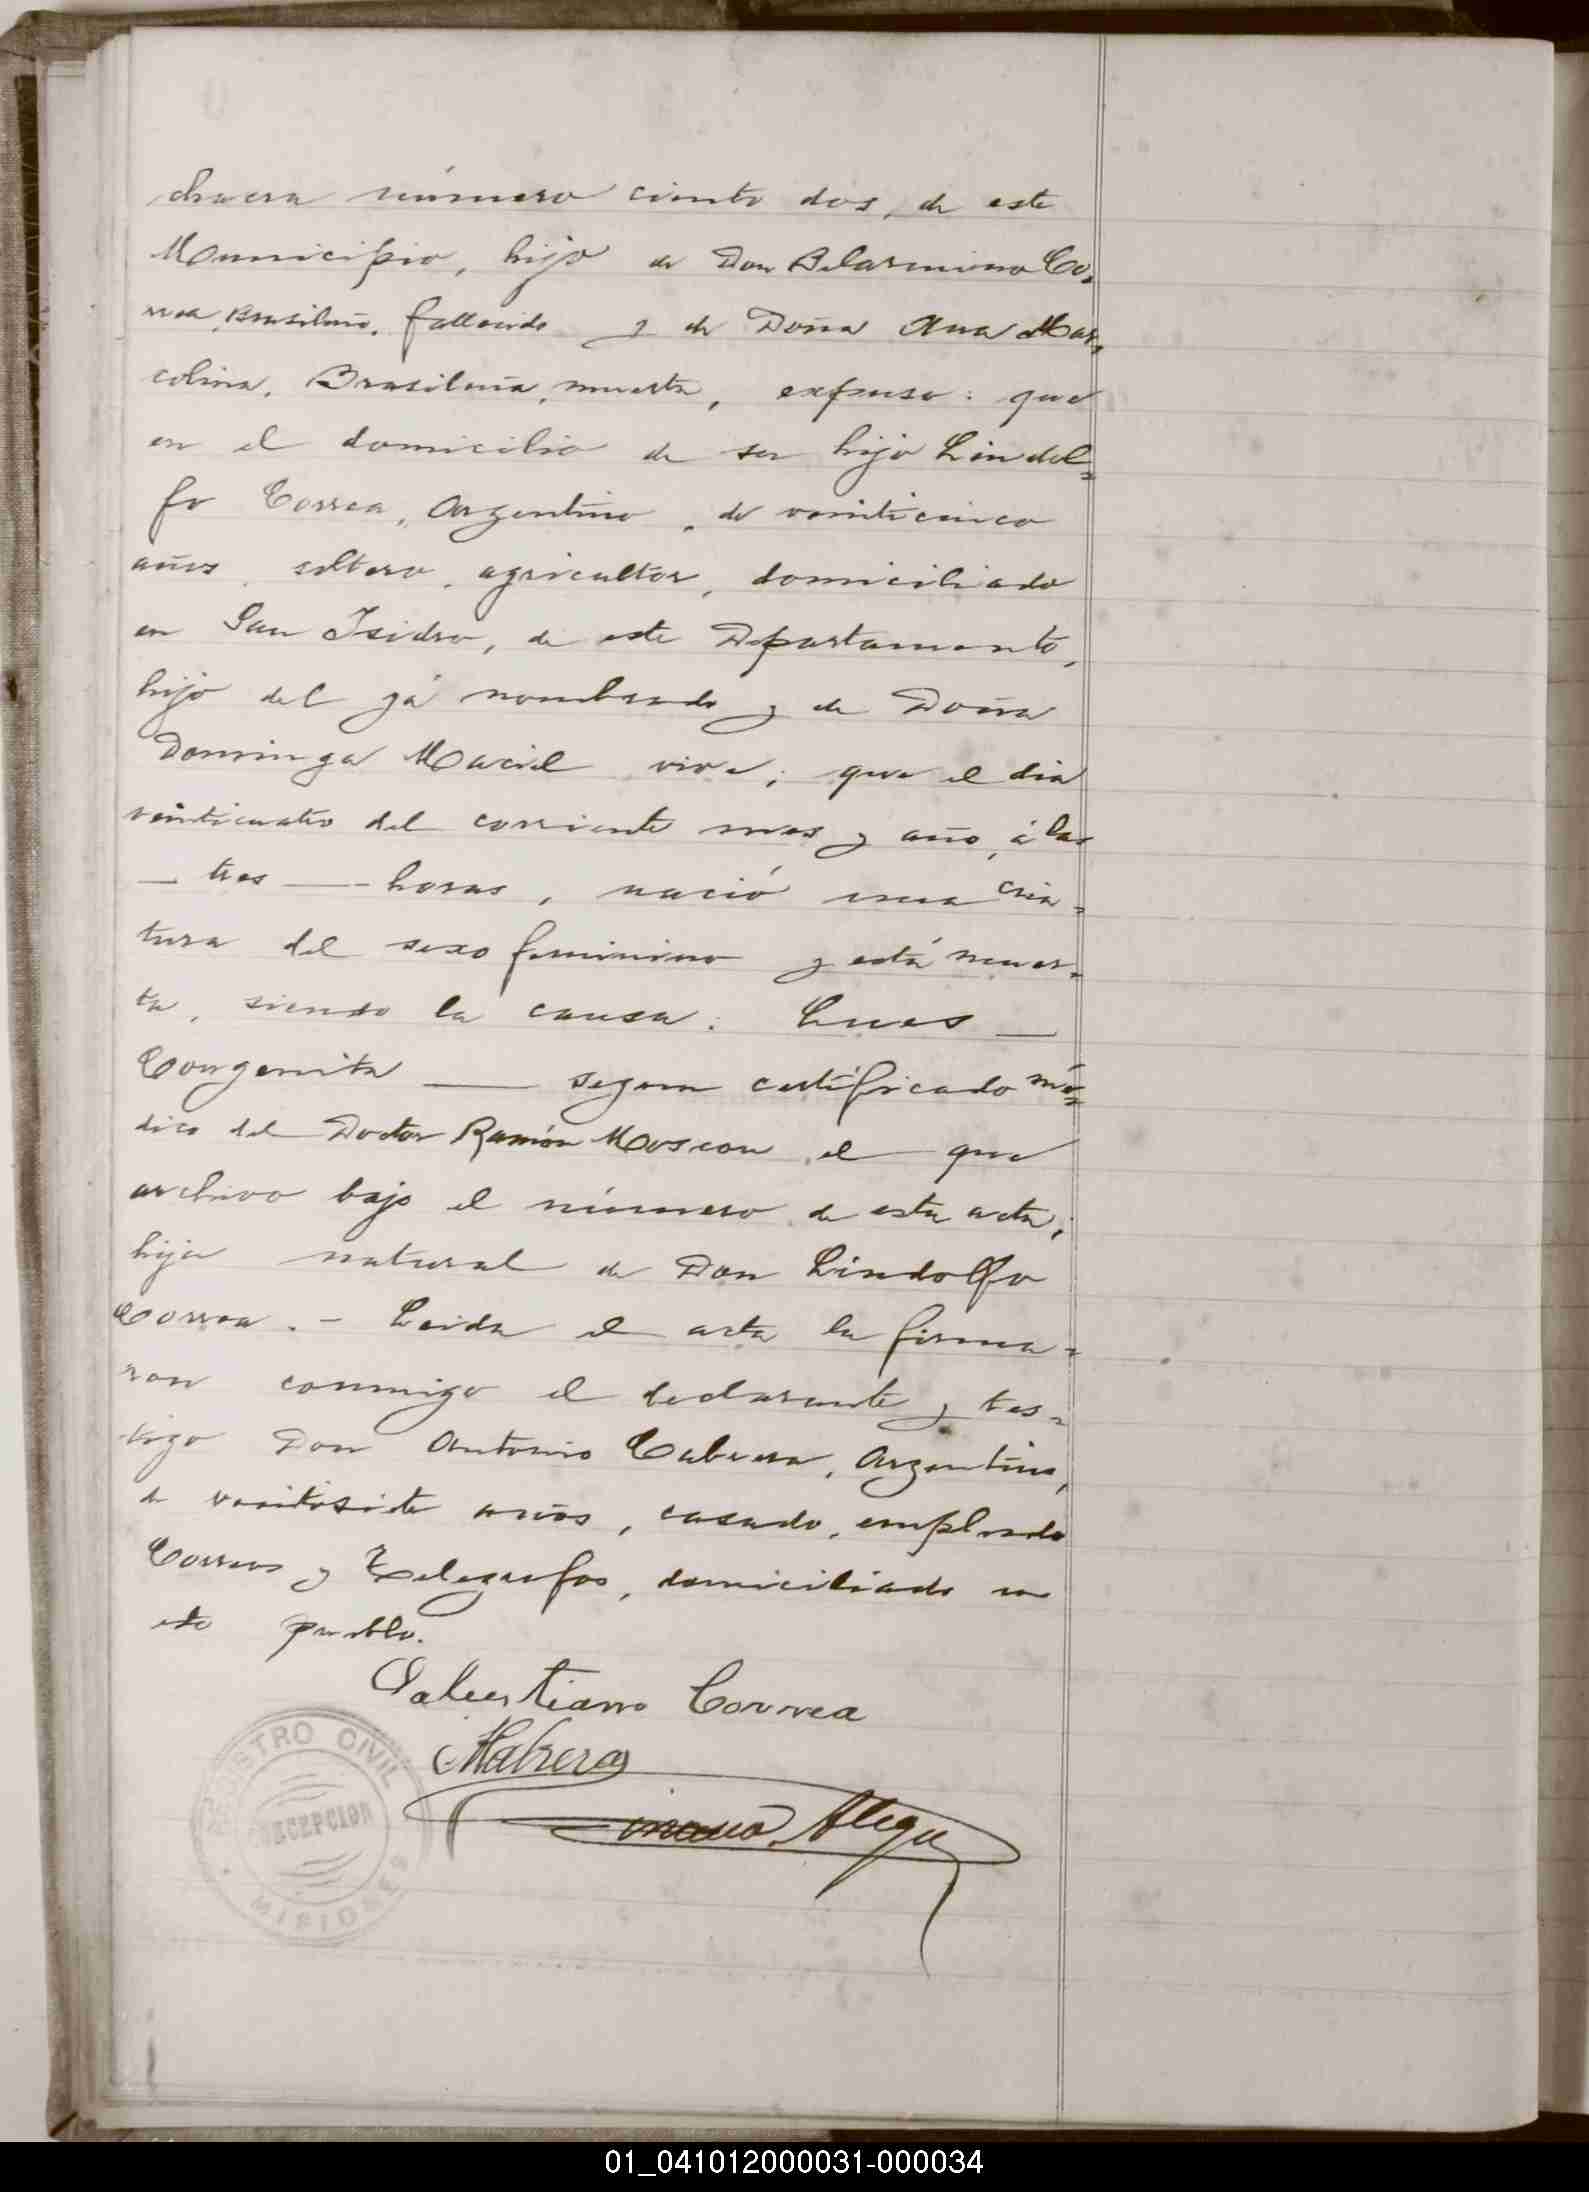 chacra número ciento dos, de este
Municipio, hijo de Don Belarmino Co-
rrea, Brasileño, fallecido y de Doña Ana Mar-
colina, Brasileña, muerta, expuso: que
en el domicilio de su hijo Lindol-
fo Correa, Argentino, de veinticinco
años, soltero, agricultor, domiciliado
en San Isidro, de este Departamento,
hijo del yá nombrado y de Doña
Dominga Maciel vive; que el dia
veinticuatro del corriente mes y año, á las
— tres — horas, nació una cria-
tura del sexo feminino y está muer-
ta, siendo la causa: Lues —
Congenita — segun certificado mé-
dico del Doctor Ramón Moscon, el que
archivo bajo el número de esta acta;
hija natural de Don Lindolfo
Correa. — Leida el acta la firma-
ron conmigo el declarante y tes-
tigo Don Antonio Cabrera, Argentino,
de veintisiete años, casado, empleado
Correos y Telegrafos, domiciliado en
este pueblo.
Correa
REGISTRO CIVIL
CONCEPCION
MISIONES
01_041012000031-000034